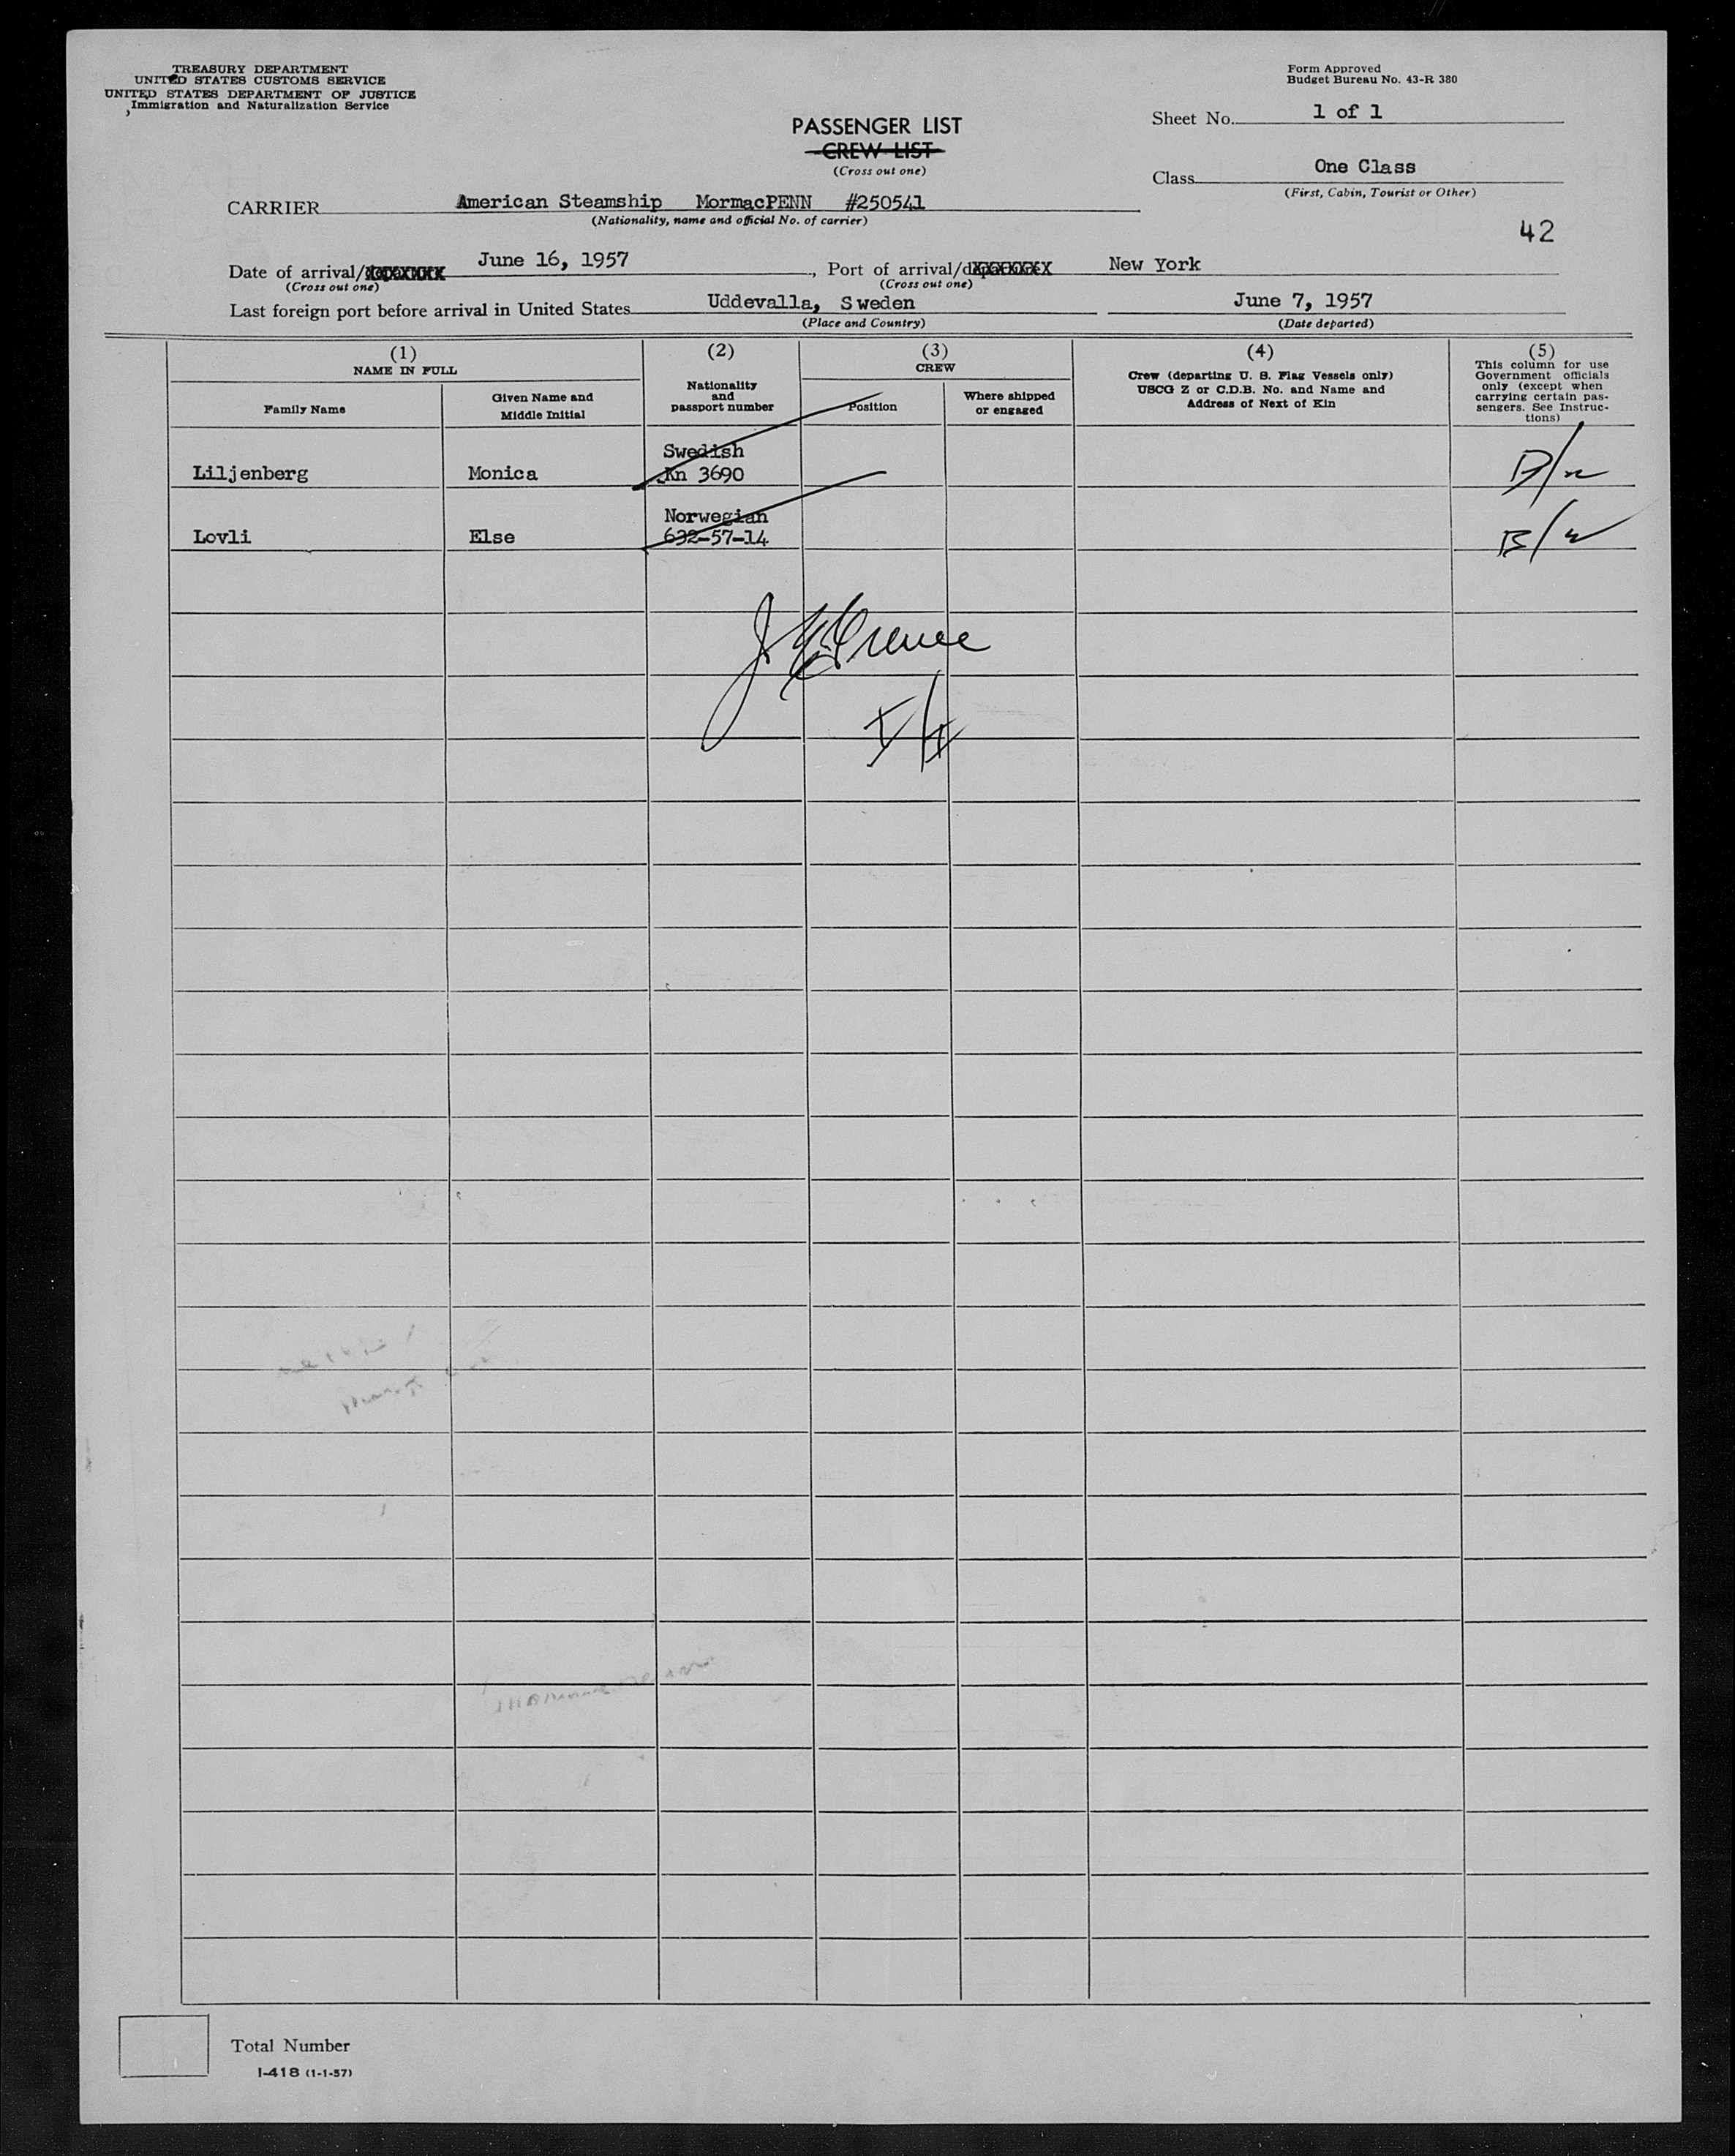 TREASURY DEPARTMENT
UNITED STATES CUSTOMS SERVICE
UNITED STATES DEPARTMENT OF JUSTICE
Immigration and Naturalization Service
Form Approved
Budget Bureau No. 43-R 380
PASSENGER LIST
CREW LIST
(Cross out one)
Sheet No. 1 of 1
Class One Class
(First, Cabin, Tourist or Other)
CARRIER American Steamship MormacPENN #250541
(Nationality, name and official No. of carrier)
42
Date of arrival/ June 16, 1957, Port of arrival/ New York
(Cross out one) (Cross out one)
Last foreign port before arrival in United States Uddevalla, Sweden June 7, 1957
(Place and Country) (Date departed)
(1)
NAME IN FULL
Family Name
Given Name and
Middle Initial
(2)
Nationality
and
passport number
(3)
CREW
Position
Where shipped
or engaged
(4)
Crew (departing U. S. Flag Vessels only)
USCG Z or C.D.B. No. and Name and
Address of Next of Kin
(5)
This column for use
Government officials
only (except when
carrying certain pas-
sengers. See Instruc-
tions)
Swedish
Liljenberg Monica Kn 3690
Norwegian
Lovli Else 632-57-14
Total Number
I-418 (1-1-57)